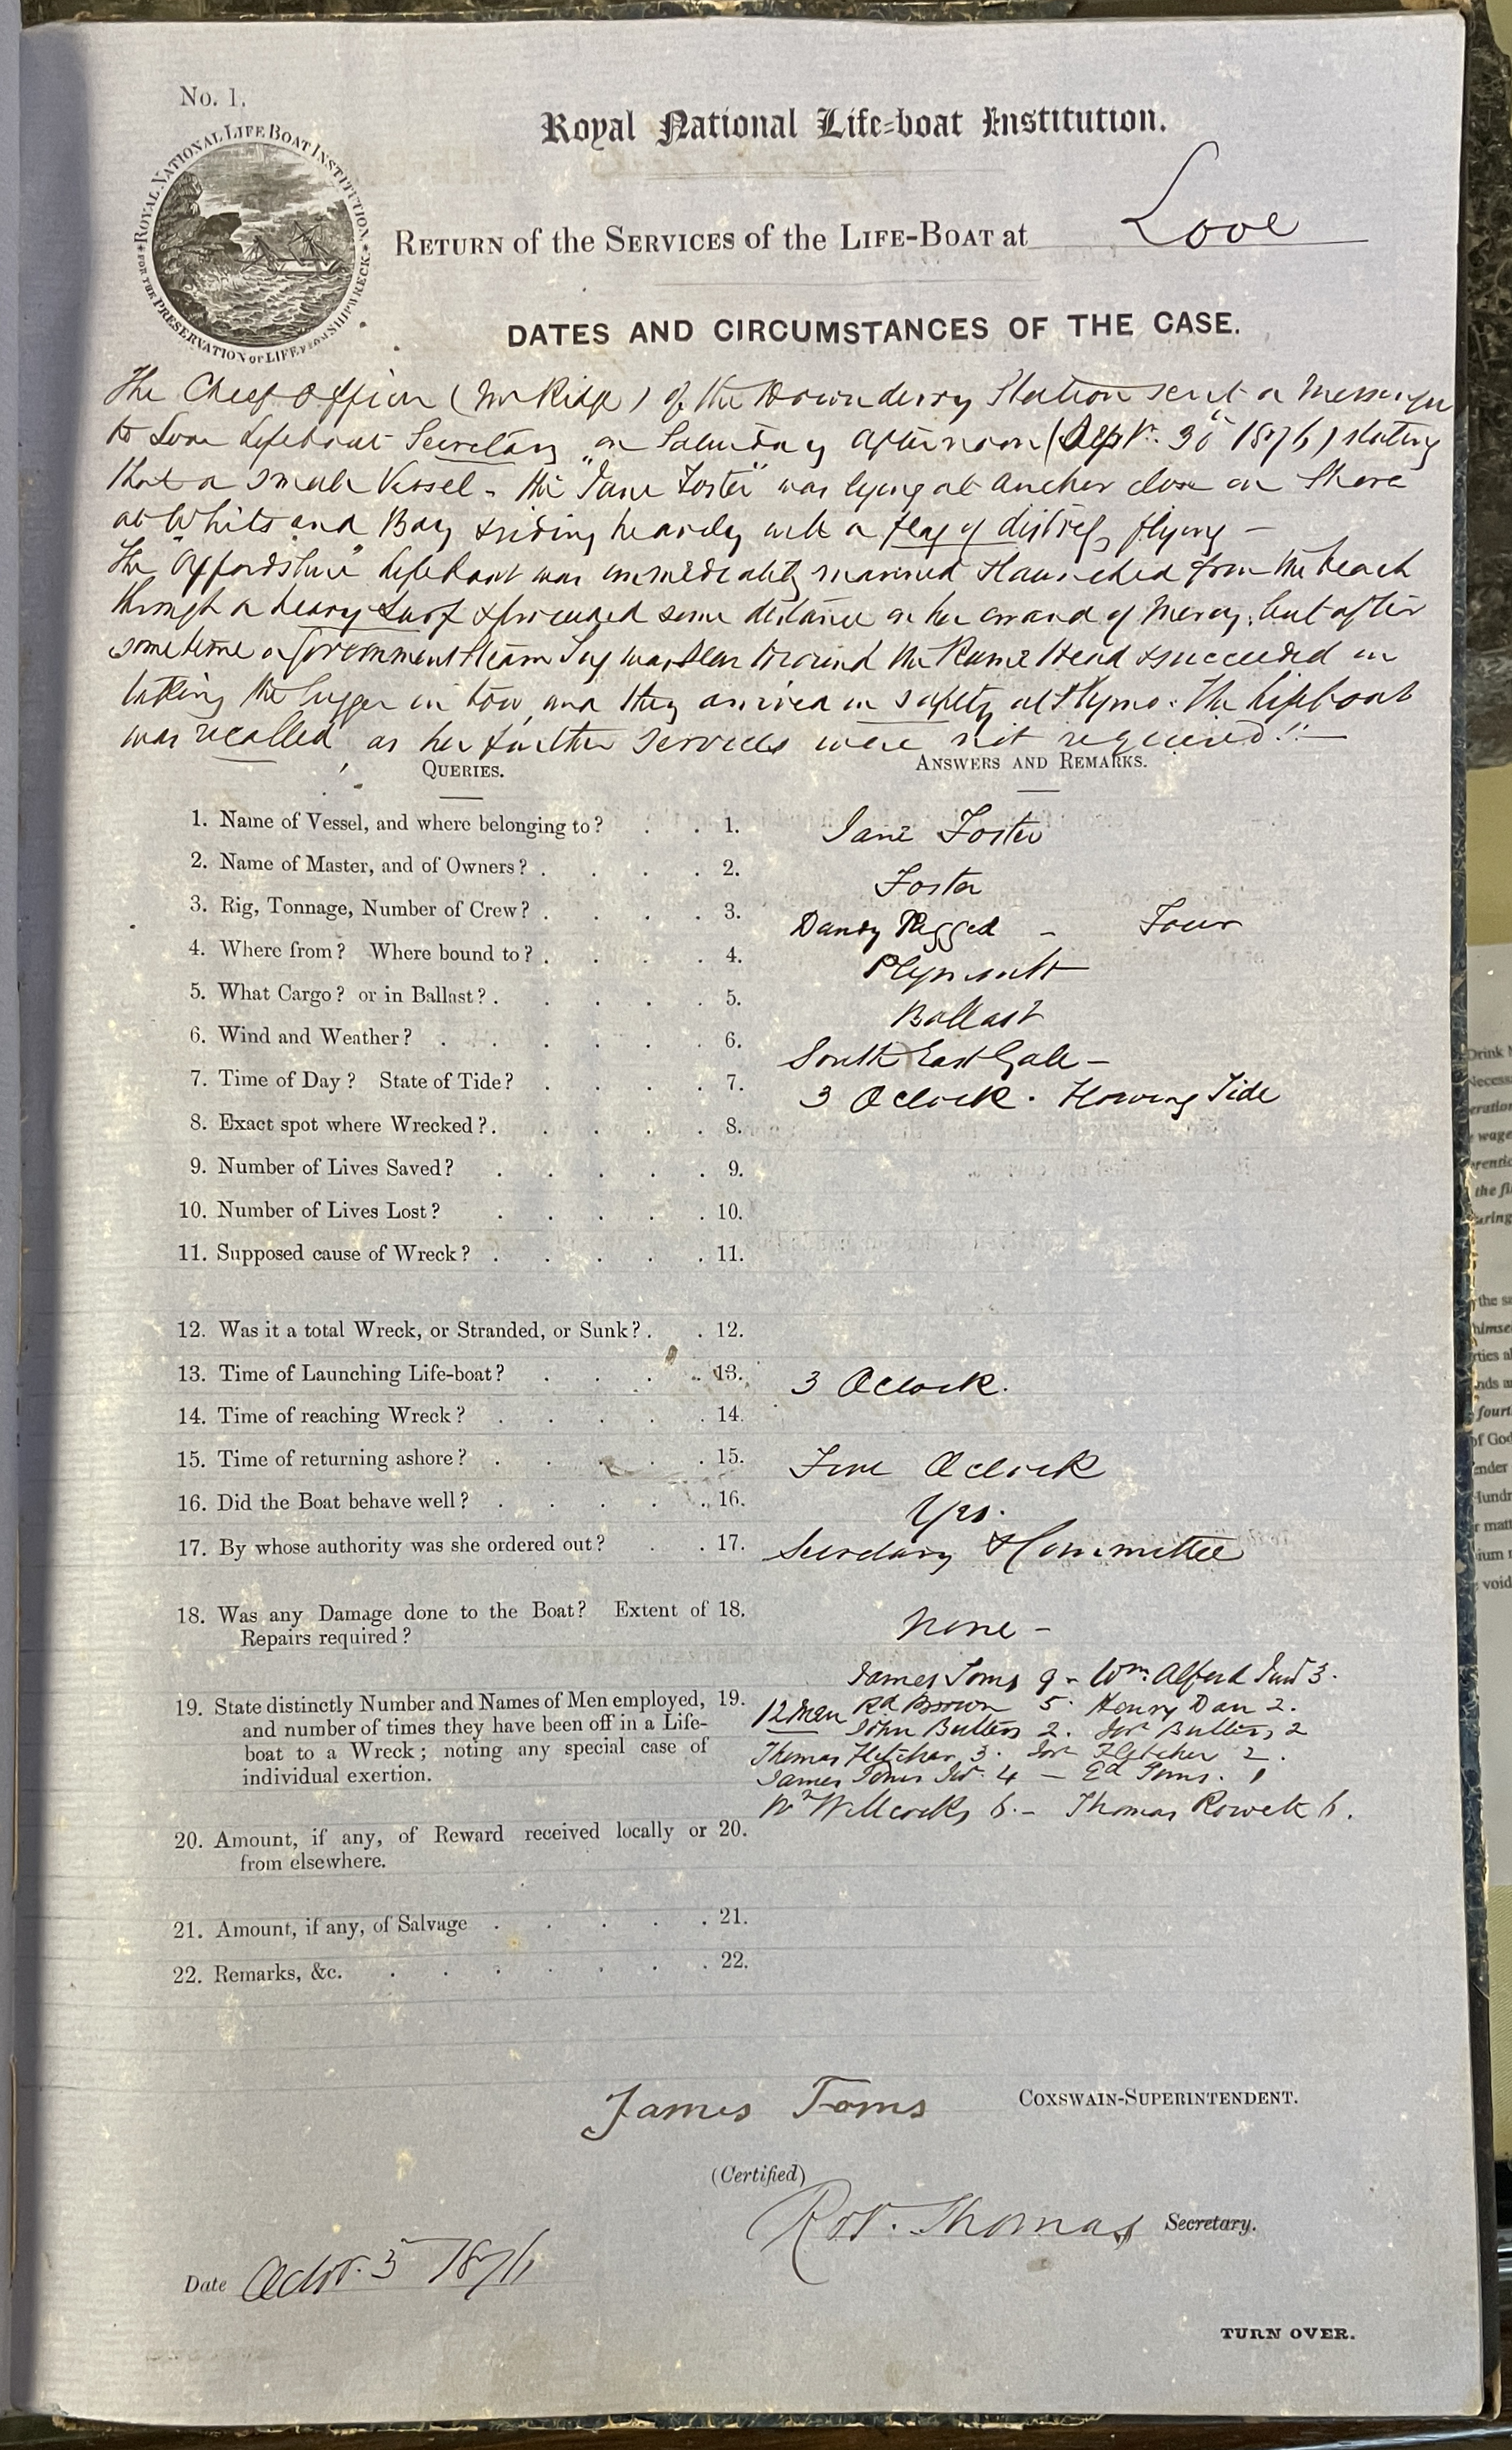 No. 1.
ROYAL NATIONAL LIFE BOAT INSTITUTION
FOR THE PRESERVATION OF LIFE FROM SHIPWRECK
Royal National Life-boat Institution.
RETURN of the SERVICES of the LIFE-BOAT at Looe
DATES AND CIRCUMSTANCES OF THE CASE.
The Chief Officer (Mr Ridge) of the Downderry Station sent a Messenger
to Looe Lifeboat Secretary on Saturday afternoon (Septr. 30 1876) stating
that a small Vessel - the "Jane Foster" was lying at anchor close on Shore
at Whitsand Bay & riding heavily with a flag of distress flying -
The "Oxfordshire" Lifeboat was immediately manned & launched from the beach
through a heavy Surf & proceeded some distance on her errand of Mercy, but after
sometime a Government Steam Tug was seen to round the Rame Head & succeeded in
taking the lugger in tow and they arrived in safety at Plymo. The lifeboat
was recalled as her further services were not required!!—
QUERIES.
ANSWERS AND REMARKS.
1. Name of Vessel, and where belonging to? . . 1. Jane Foster
2. Name of Master, and of Owners? . . . . 2. Foster
3. Rig, Tonnage, Number of Crew? . . . . 3. Dandy Rigged - Four
4. Where from? Where bound to? . . . . 4. Plymouth
5. What Cargo? or in Ballast? . . . . . 5. Ballast
6. Wind and Weather? . . . . . . 6. South East Gale -
7. Time of Day? State of Tide? . . . . 7. 3 O'Clock. Flowing Tide
8. Exact spot where Wrecked? . . . . . 8.
9. Number of Lives Saved? . . . . . 9.
10. Number of Lives Lost? . . . . . 10.
11. Supposed cause of Wreck? . . . . . 11.
12. Was it a total Wreck, or Stranded, or Sunk? . . 12.
13. Time of Launching Life-boat? . . . . 13. 3 O'Clock.
14. Time of reaching Wreck? . . . . . 14.
15. Time of returning ashore? . . . . . 15. Five O'Clock
16. Did the Boat behave well? . . . . . 16. Yes.
17. By whose authority was she ordered out? . . 17. Secretary & Committee
18. Was any Damage done to the Boat? Extent of 18.
Repairs required?
None -
James Toms 9 - Wm Alford Junr 3.
19. State distinctly Number and Names of Men employed, 19.
and number of times they have been off in a Life-
boat to a Wreck; noting any special case of
individual exertion.
12 Men Rd Brown 5. Henry Dan 2.
John Butters 2. Butters 2
Thomas Fletcher 3. Fletcher 2.
James Toms Jr. 4 - Ed Toms. 1
Wm Willcocks 6. - Thomas Rowett 6.
20. Amount, if any, of Reward received locally or 20.
from elsewhere.
21. Amount, if any, of Salvage . . . . . 21.
22. Remarks, &c. . . . . . . . 22.
James Toms COXSWAIN-SUPERINTENDENT.
(Certified)
Robt. Thomas Secretary.
Date Octr. 3 1876
TURN OVER.